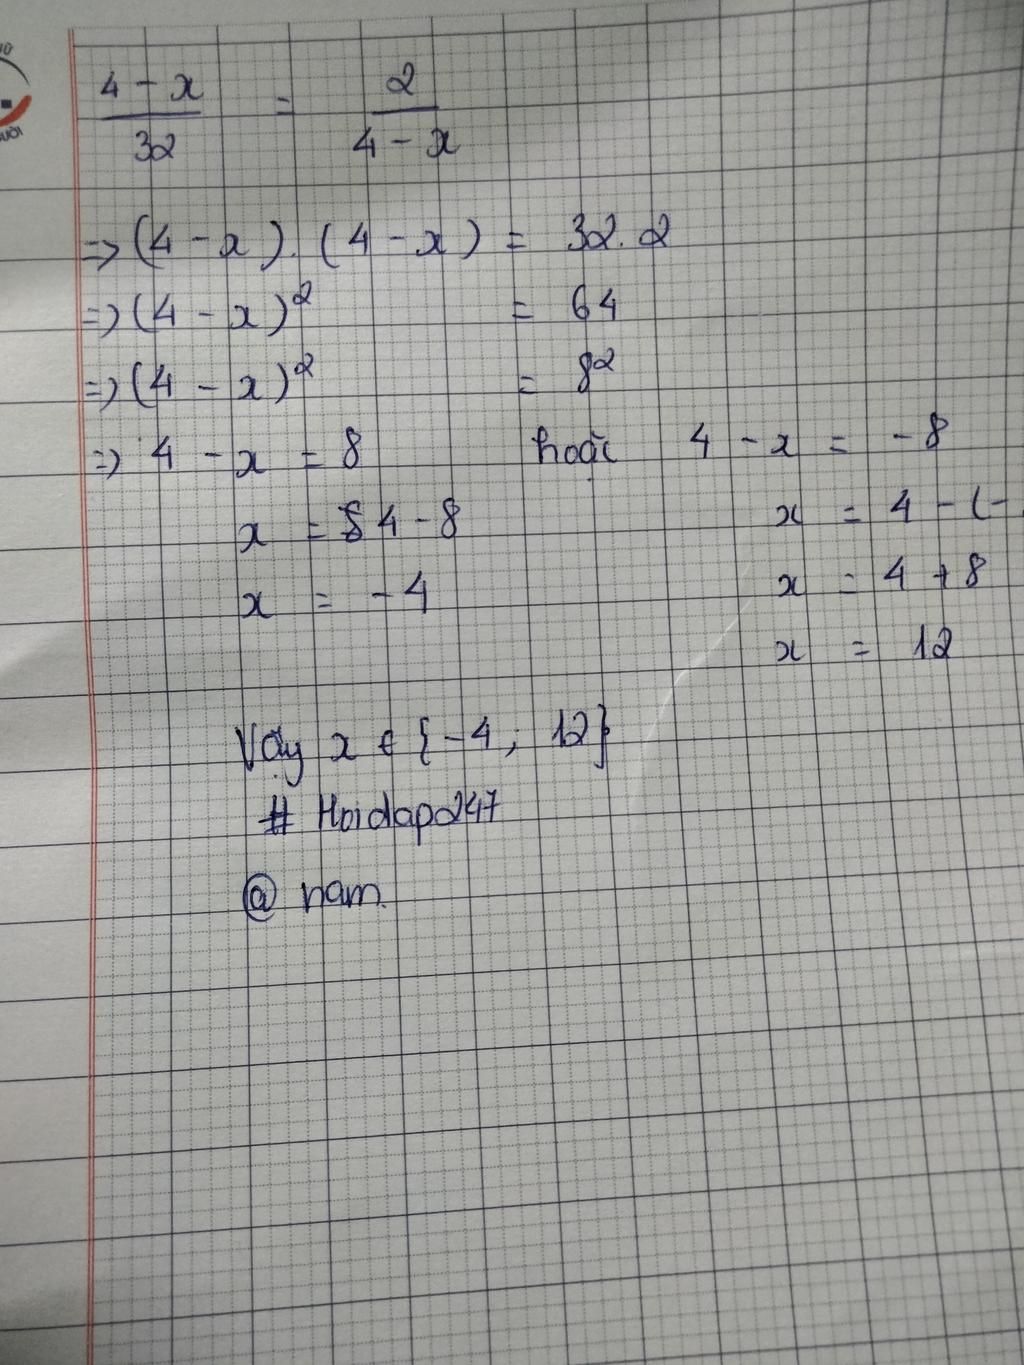 4 - x / 32 = 2 / 4 - x
=> (4 - x) . (4 - x) = 32. 2
=> (4 - x)² = 64
=> (4 - x)² = 8²
=> 4 - x = 8 hoặc 4 - x = - 8
x = 4 - 8 x = 4 - (-
x = - 4 x = 4 + 8
x = 12
Vậy x ∈ {-4 ; 12}
# Hoidap247
@ nam